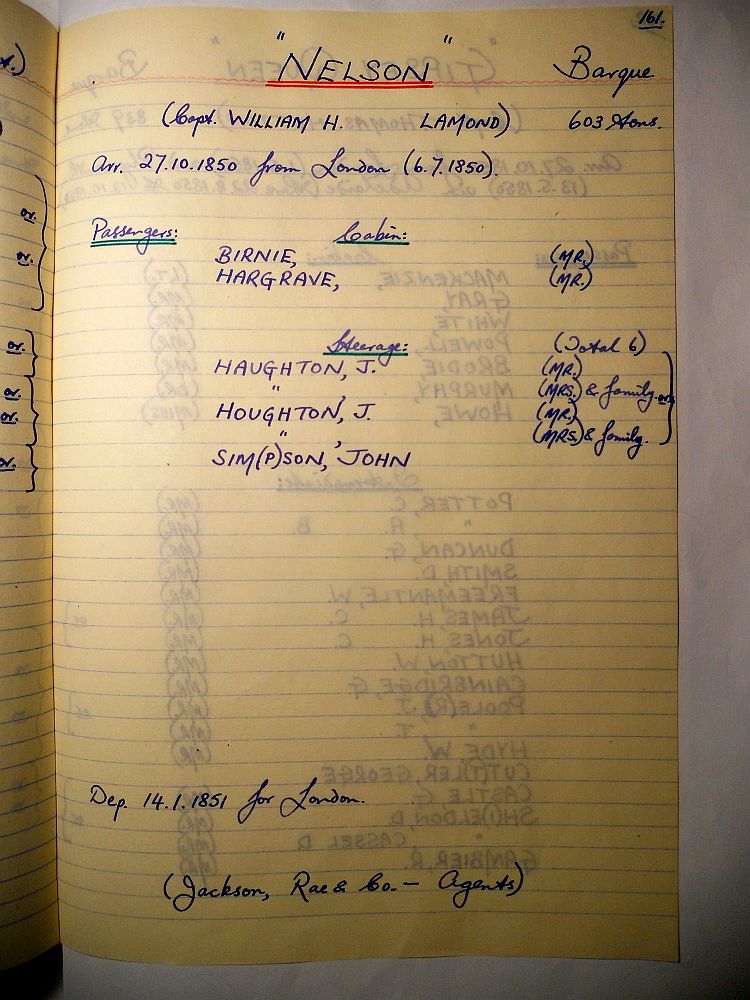 161.
"NELSON" Barque
(Capt. WILLIAM H. LAMOND) 603 Tons.
Arr. 27.10.1850 from London (6.7.1850).
Passengers: Cabin:
BIRNIE, (MR.)
HARGRAVE, (MR.)
Steerage: (Total 6)
HAUGHTON, J. (MR.)
" , (MRS.) & family. or.
HOUGHTON, J. (MR.)
" , (MRS.) & family.
SIM(P)SON, JOHN
Dep. 14.1.1851 for London.
(Jackson, Rae & Co. — Agents)
or.
or.
or.
or.
or.
or.